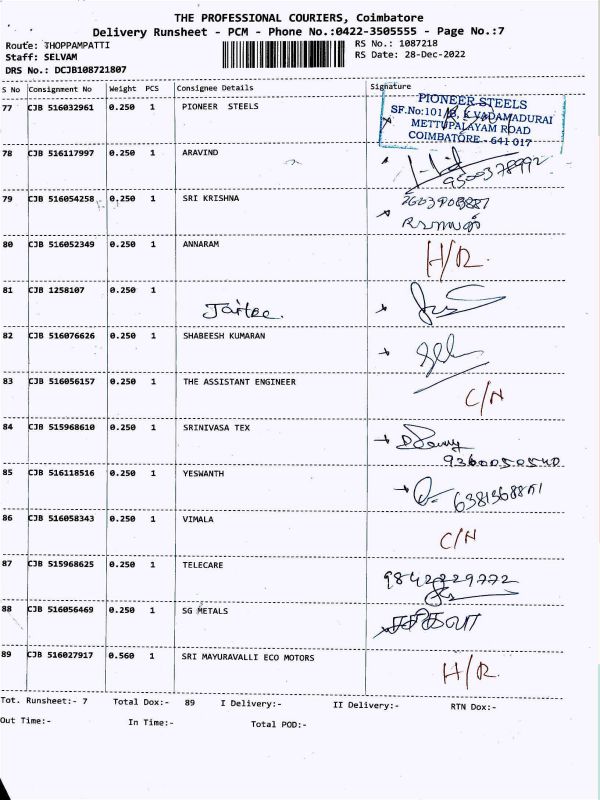 THE PROFESSIONAL COURIERS, Coimbatore
Delivery Runsheet - PCM - Phone No.:0422-3505555 - Page No.:7
Route: THOPPAMPATTI
RS No.: 1087218
Staff: SELVAM
RS Date: 28-Dec-2022
DRS No.: DCJB108721807
S No Consignment No Weight PCS Consignee Details Signature
77 CJB 516032961 0.250 1 PIONEER STEELS
PIONEER STEELS
SF.No:101 K.VADAMADURAI
METTUPALAYAM ROAD
COIMBATORE - 641 017
78 CJB 516117997 0.250 1 ARAVIND
9500378992
79 CJB 516054258 0.250 1 SRI KRISHNA
80 CJB 516052349 0.250 1 ANNARAM H/R.
81 CJB 1258107 0.250 1
82 CJB 516076626 0.250 1 SHABEESH KUMARAN
83 CJB 516056157 0.250 1 THE ASSISTANT ENGINEER C/N
84 CJB 515968610 0.250 1 SRINIVASA TEX
9360050540
85 CJB 516118516 0.250 1 YESWANTH
86 CJB 516058343 0.250 1 VIMALA C/N
87 CJB 515968625 0.250 1 TELECARE 9842229772
88 CJB 516056469 0.250 1 SG METALS சசிகலா
89 CJB 516027917 0.560 1 SRI MAYURAVALLI ECO MOTORS H/R.
Tot. Runsheet:- 7 Total Dox:- 89 I Delivery:- II Delivery:- RTN Dox:-
Out Time:- In Time:- Total POD:-